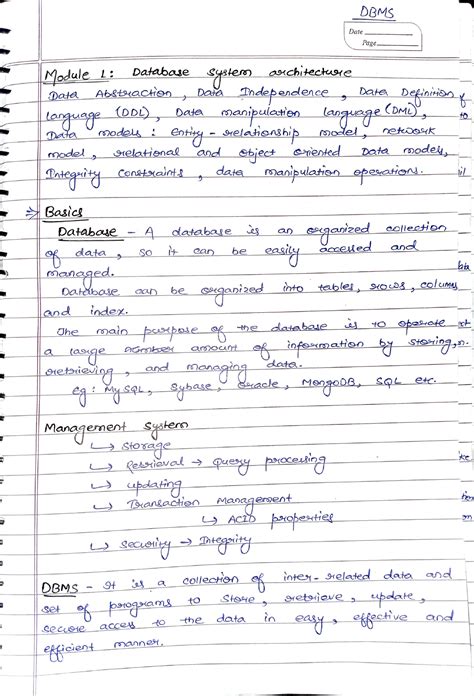 DBMS
Date
Page
Module 1: Database system architecture
Data Abstraction, Data Independence, Data Definition
language (DDL), Data manipulation language (DML),
Data models: Entity-relationship model, network
model, relational and object oriented Data models,
Integrity constraints, data manipulation operations.
⇒ Basics
Database - A database is an organized collection
of data, so it can be easily accessed and
managed.
Database can be organized into tables, rows, columns
and index.
The main purpose of the database is to operate
a large number amount of information by storing,
retrieving, and managing data.
eg: MySQL, Sybase, Oracle, MongoDB, SQL etc.
Management System
↳ Storage
↳ Retrieval → Query processing
↳ updating
↳ Transaction Management
↳ ACID properties
↳ Security → Integrity
DBMS - It is a collection of inter-related data and
set of programs to store, retrieve, update,
secure access to the data in easy, effective and
efficient manner.